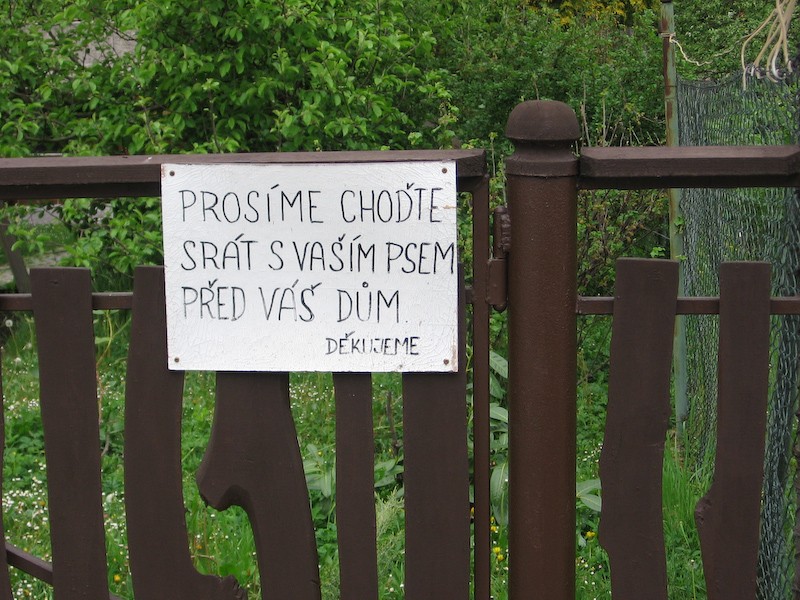 PROSÍME CHOĎTE
SRÁT S VAŠÍM PSEM
PŘED VÁŠ DŮM.
DĚKUJEME